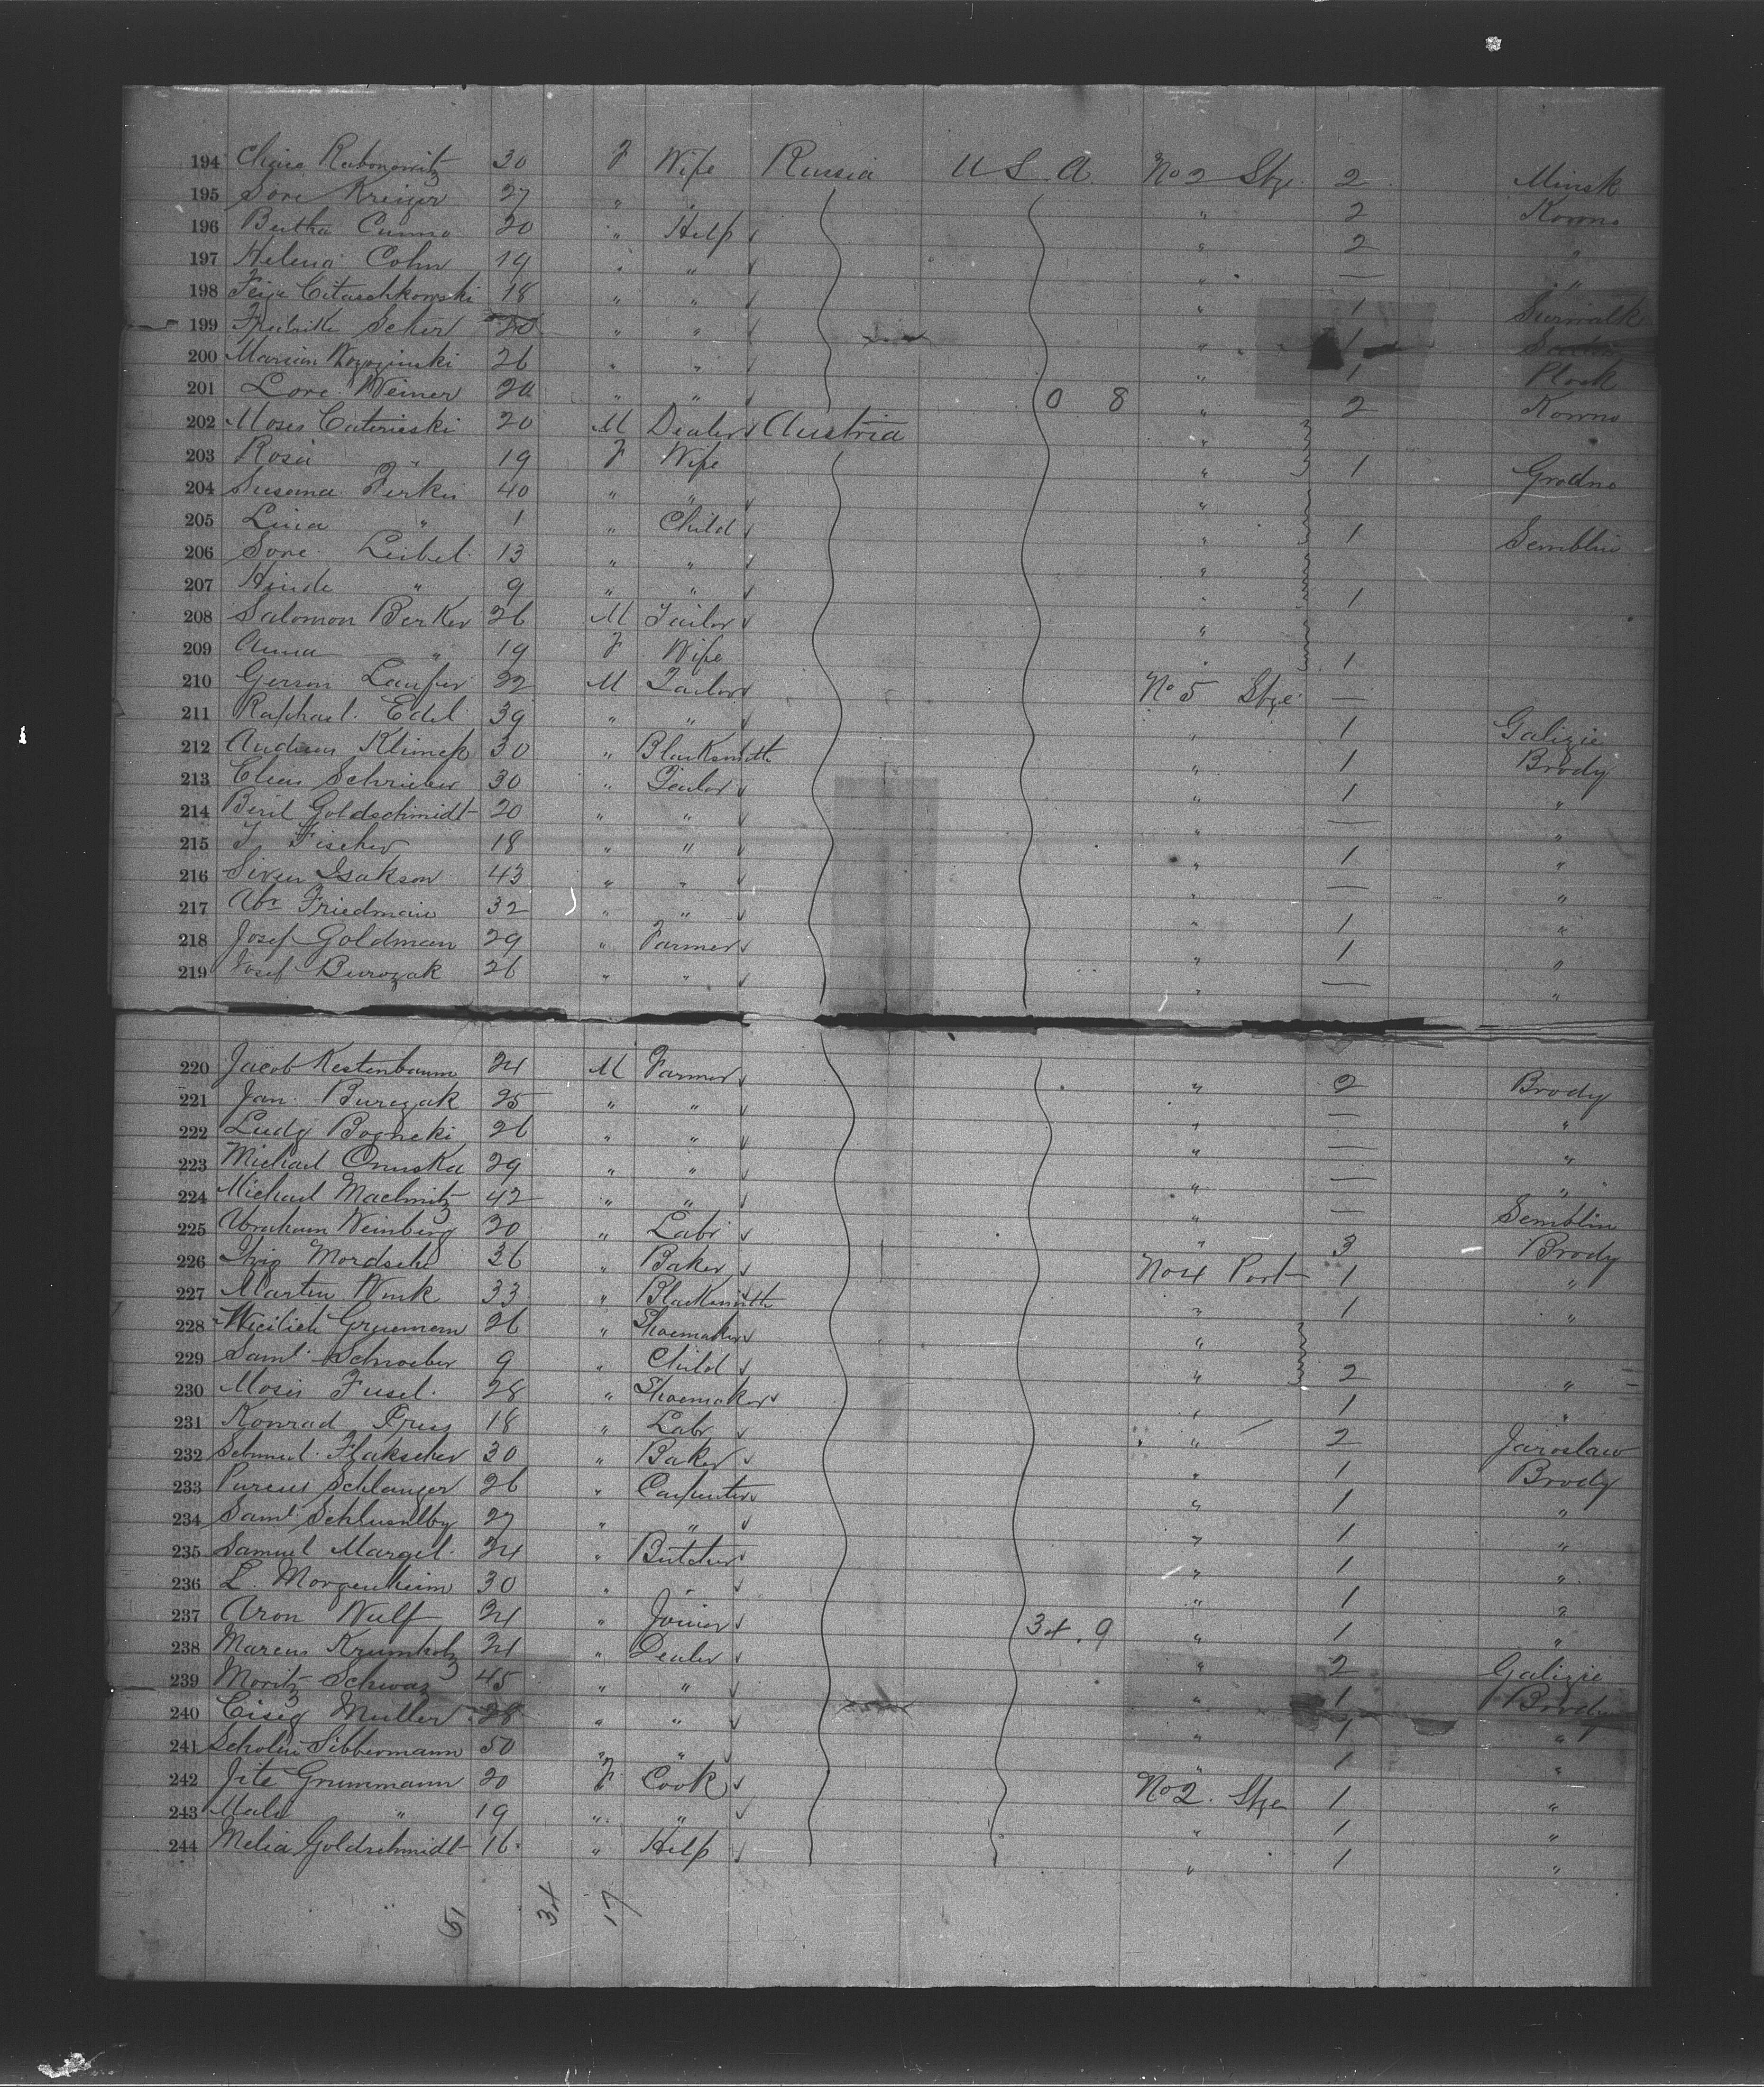 194 Chaie Rabonowitz 30 F Wife Russia U S A No 2 Stge 2 Minsk
195 Sore Kreiger 27 " " " 2 Kowno
196 Bertha Cunno 20 " Help " 2 "
197 Helena Cohn 19 " " " — "
198 Feige Citaschkowski 18 " " " 1 Suwalk
199 Fredrike Scher 20 " " " 1
200 Marian 26 " " " 1 Plock
201 Lore Weiner 20 " " 0 8 " 2 Kowno
202 Moses Caterieski 20 M Dealer Austria "
203 Rosa " 19 F Wife " 1 Grodno
204 Susana Ferkei 40 " " "
205 Lina " 1 " Child " 1 Semblin
206 Sore Leibel 13 " " "
207 Hinde " 9 " " " 1
208 Salomon Berker 26 M Tailor "
209 Anna " 19 F Wife " 1
210 Gerson Laufer 22 M Tailor No 5 Stge —
211 Raphael Edel 39 " " " 1 Galizie
212 Andreas Klimek 30 " Blacksmith " 1 Brody
213 Elias Schrieber 30 " Tailor " 1 "
214 Beril Goldschmidt 20 " " " — "
215 J Fischer 18 " " " 1 "
216 Siven Isakson 43 " " " — "
217 Abr Friedman 32 " " " 1 "
218 Josef Goldman 29 " Farmer " 1 "
219 Josef Burozak 26 " " " — "
220 Jacob Kestenbaum 24 M Farmer " 2 Brody
221 Jan Burezak 25 " " " — "
222 Ludg Bogneki 26 " " " — "
223 Michael Onuska 29 " " " — "
224 Michael Machnitz 42 " " " — Semblin
225 Abraham Weinberg 20 " Labr " 3 Brody
226 Mordsche 36 " Baker No 4 Port 1 "
227 Martin Wonk 33 " Blacksmith " 1 "
228 Gruemem 26 " Shoemaker "
229 Saml Schnoeber 9 " Child " 2 "
230 Moses Fusel 28 " Shoemaker " 1 "
231 Konrad Prus 18 " Labr " 2 Jaroslaw
232 Schmed Flakscher 30 " Baker " 1 Brody
233 Parcus Schlanger 26 " Carpenter " 1 "
234 Saml Schluselbg 27 " " " 1 "
235 Samuel Margel 24 " Butcher " 1 "
236 L. Morgenheim 30 " " " 1 "
237 Aron Wulf 24 " Joiner 34.9 " 1 "
238 Marcus Krumholz 24 " Dealer " 2 Galizie
239 Moritz Schwaz 45 " " " 1 Brody
240 Ciseg Muller 28 " " " 1 "
241 Scholem Sibbermann 50 " " " 1 "
242 Jite Grummann 20 F Cook No 2. Stge 1 "
243 Male " 19 " " " 1 "
244 Melia Goldschmidt 16 " Help " 1 "
51 34 17